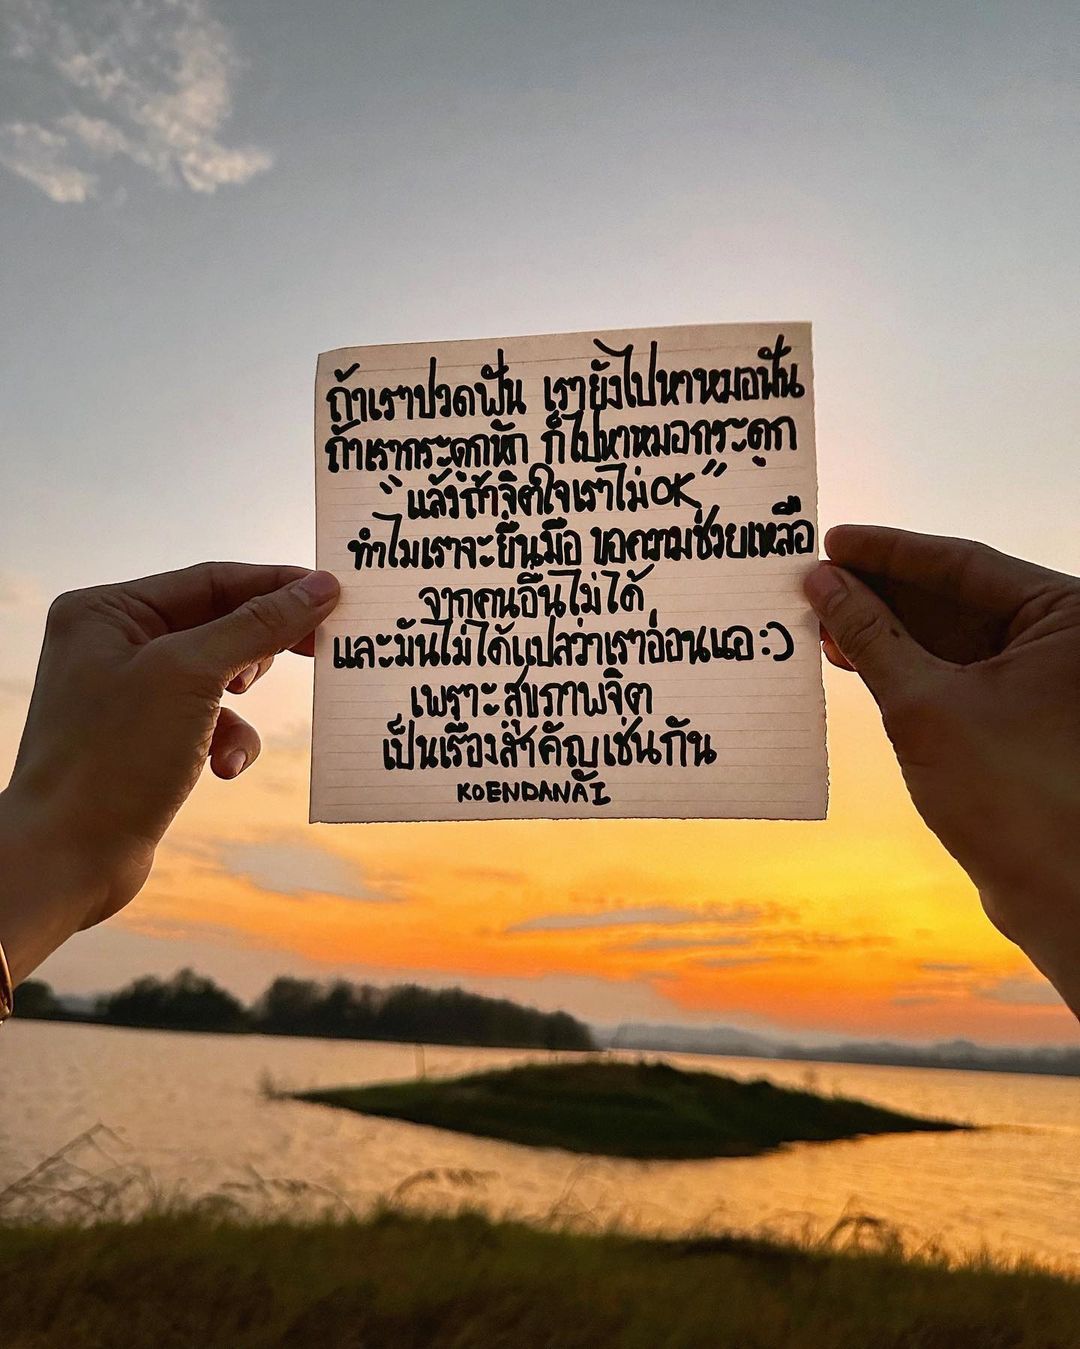 ถ้าเราปวดฟัน เรายังไปหาหมอฟัน
ถ้าเรากระดูกหัก ก็ไปหาหมอกระดูก
"แล้วถ้าจิตใจเราไม่OK"
ทำไมเราจะยื่นมือ ขอความช่วยเหลือ
จากคนอื่นไม่ได้
และมันไม่ได้แปลว่าเราอ่อนแอ:)
เพราะสุขภาพจิต
เป็นเรื่องสำคัญเช่นกัน
KOENDANAI